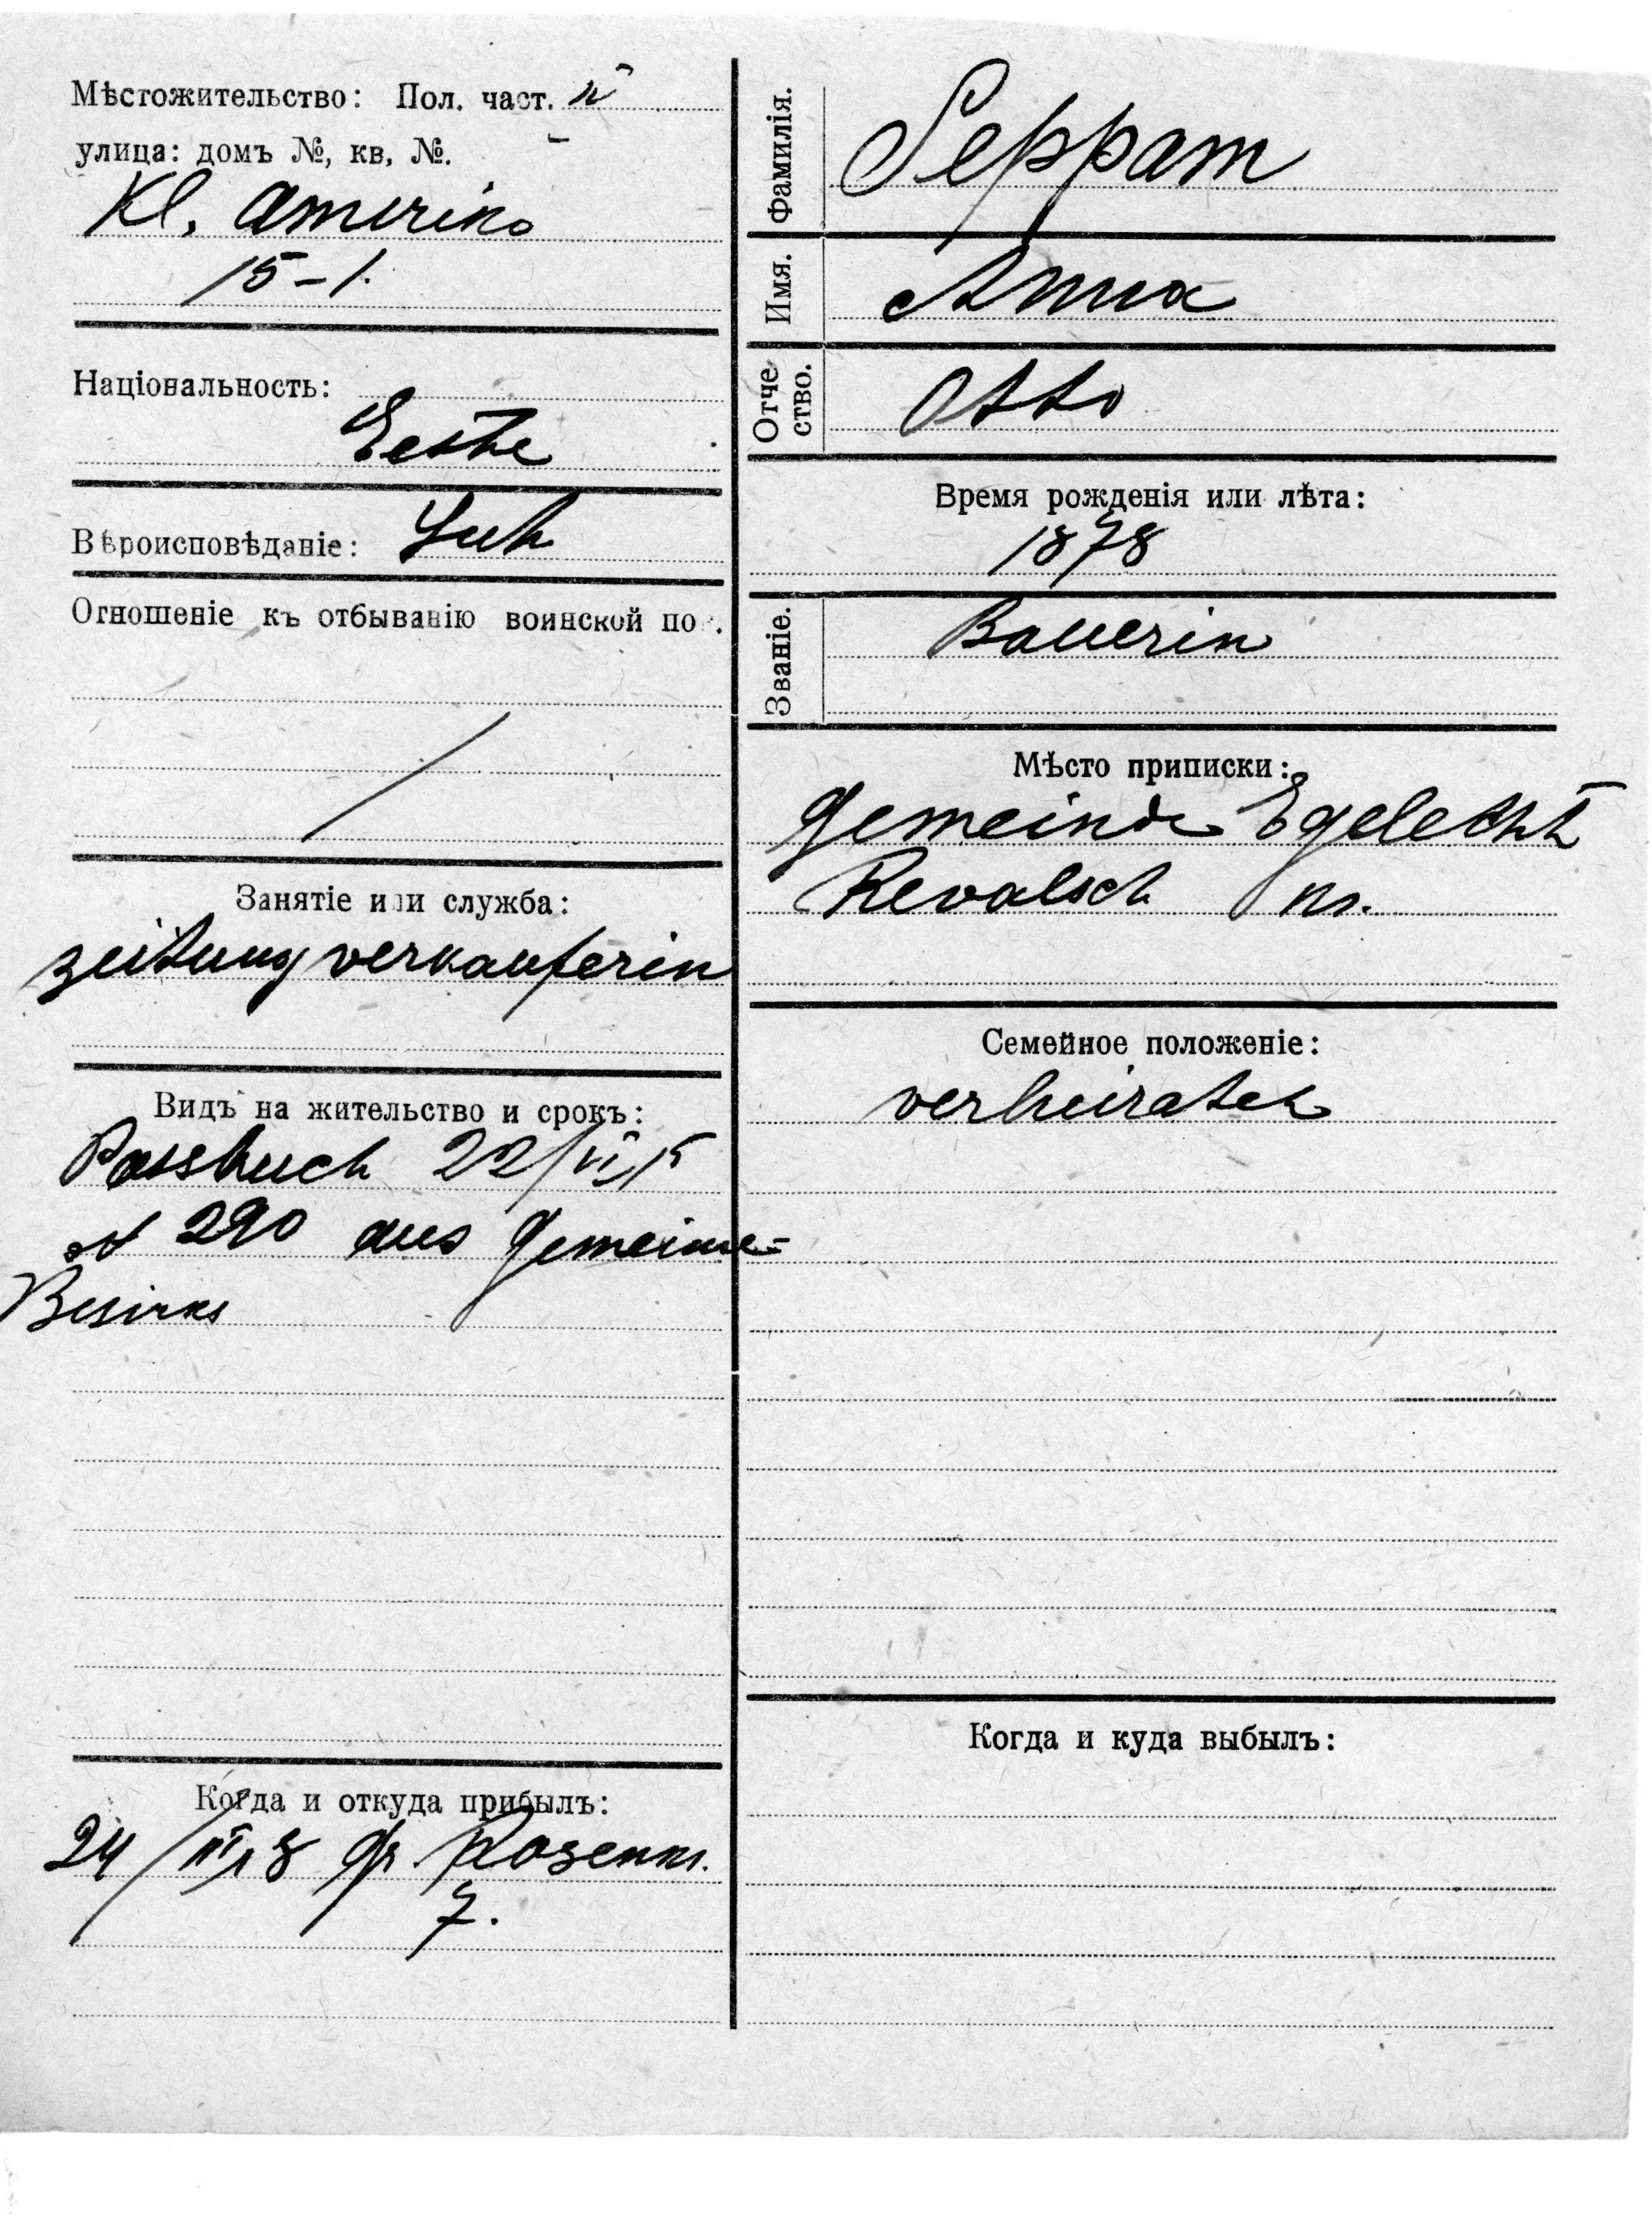 Мѣстожительство: Пол. част. II
улица: домъ №, кв. №.
Kl. Amerika
15-1.
Національность:
Eesthe
Вѣроисповѣданіе: Luth
Отношеніе къ отбыванію воинской по .
/
Занятіе или служба:
Zeitung verkauferin
Видъ на жительство и срокъ:
Passbuch 22/VI 15
№ 290 aus Gemeinde-
Besirks
Когда и откуда прибылъ:
24/III 18 Gr. Rosenkr.
7.
Фамилія.
Seppam
Имя.
Anna
Отче
ство.
Otto
Время рожденія или лѣта:
1878
Званіе.
Bauerin
Мѣсто приписки:
Gemeinde
Revalsch kr.
Семейное положеніе:
verheiratet
Когда и куда выбылъ: